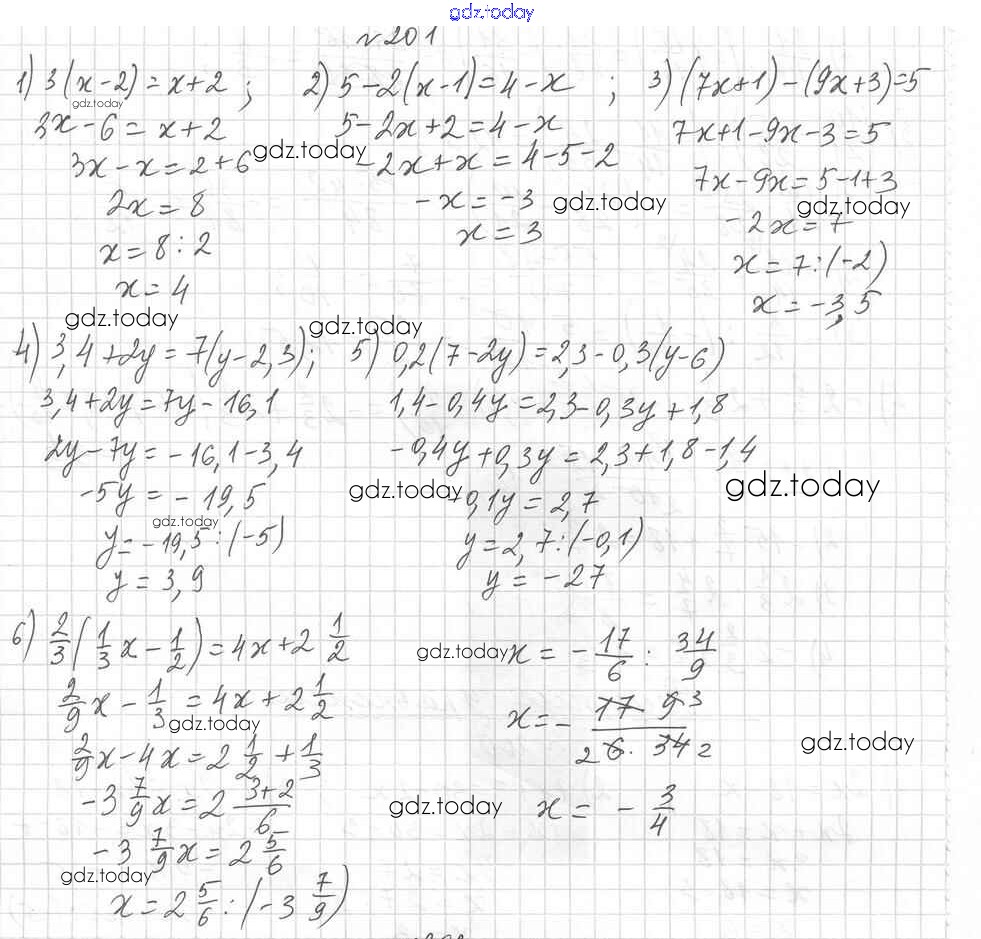 gdz.today
№201
1) 3(x-2)=x+2 ; 2) 5-2(x-1)=4-x ; 3) (7x+1)-(9x+3)=5
gdz.today
3x-6=x+2 5-2x+2=4-x 7x+1-9x-3=5
gdz.today
3x-x=2+6 -2x+x=4-5-2 7x-9x=5-1+3
2x=8 -x=-3 gdz.today -2x=7 gdz.today
x=8:2 x=3 x=7:(-2)
x=4 x=-3,5
gdz.today gdz.today
4) 3,4+2y=7(y-2,3); 5) 0,2(7-2y)=2,3-0,3(y-6)
3,4+2y=7y-16,1 1,4-0,4y=2,3-0,3y+1,8
2y-7y=-16,1-3,4 -0,4y+0,3y=2,3+1,8-1,4
-5y=-19,5 gdz.today -0,1y=2,7 gdz.today
gdz.today
y=-19,5:(-5) y=2,7:(-0,1)
y=3,9 y=-27
6) 2/3(1/3x-1/2)=4x+2 1/2 gdz.today x=-17/6:34/9
2/9x-1/3=4x+2 1/2 x=-17·9 3/2 6·34 2
gdz.today
2/9x-4x=2 1/2+1/3 gdz.today
-3 7/9x=2 3+2/6 gdz.today x=-3/4
-3 7/9x=2 5/6
gdz.today
x=2 5/6:(-3 7/9)